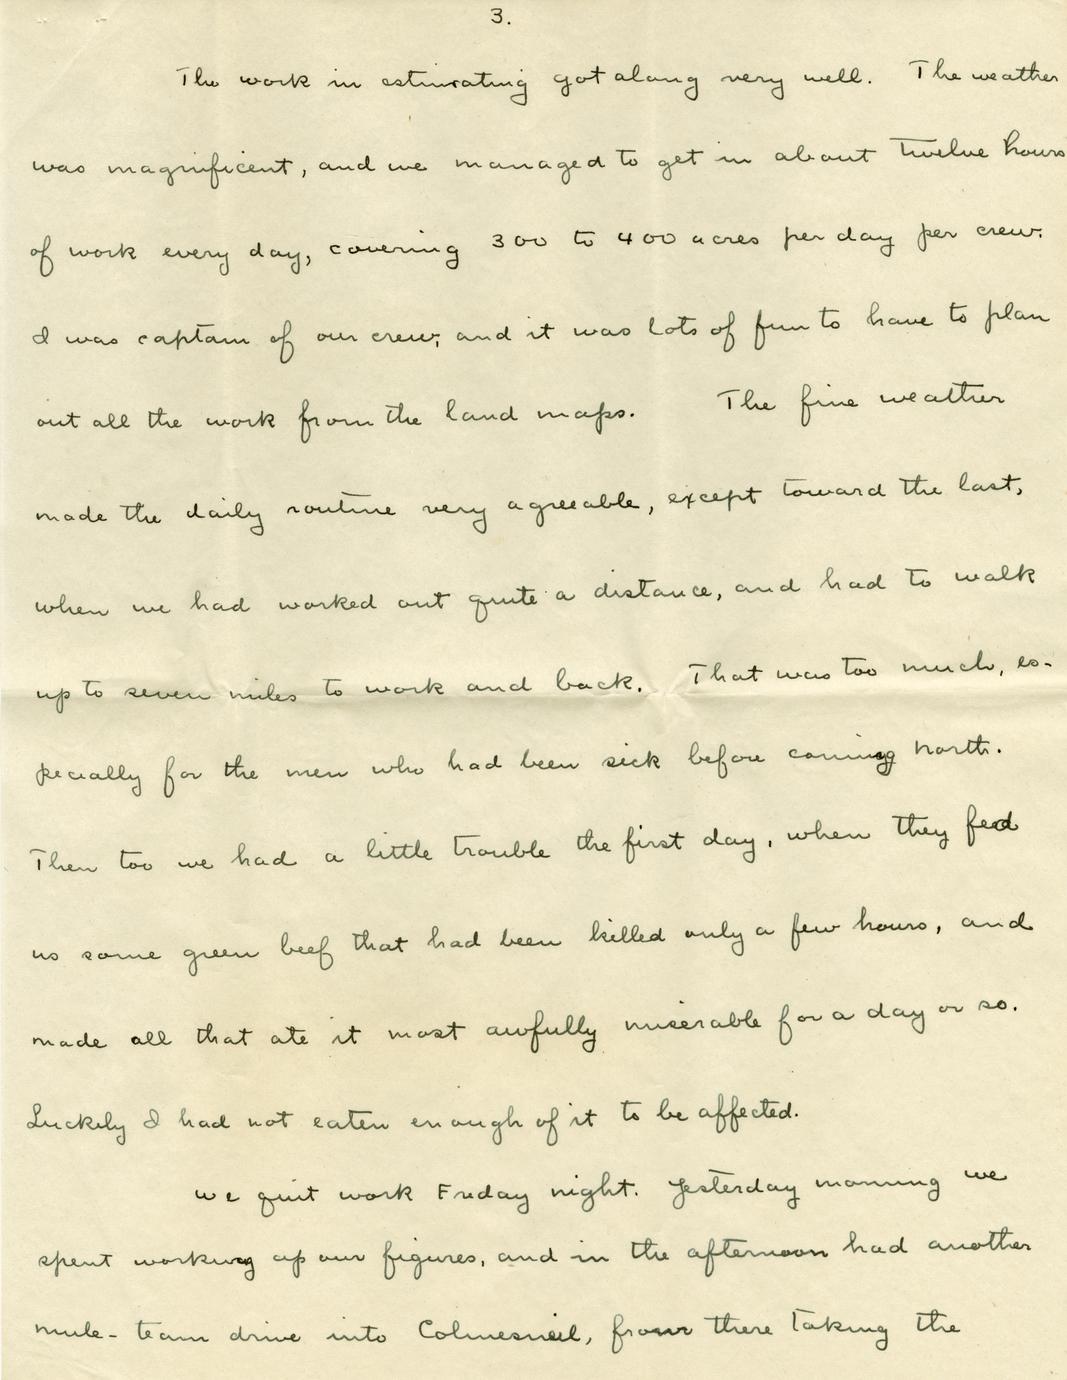 3.
The work in estimating got along very well. The weather
was magnificent, and we managed to get in about twelve hours
of work every day, covering 300 to 400 acres per day per crew.
I was captain of our crew, and it was lots of fun to have to plan
out all the work from the land maps. The fine weather
made the daily routine very agreeable, except toward the last,
when we had worked out quite a distance, and had to walk
up to seven miles to work and back. That was too much, es-
pecially for the men who had been sick before coming north.
Then too we had a little trouble the first day, when they feed
us some green beef that had been killed only a few hours, and
made all that ate it most awfully miserable for a day or so.
Luckily I had not eaten enough of it to be affected.
We quit work Friday night. Yesterday morning we
spent working up our figures, and in the afternoon had another
mule-team drive into Colmesneil, from there taking the